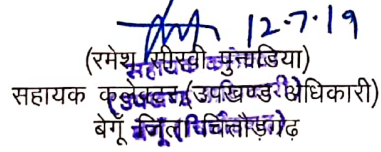 12.7.19
(रमेश सीरवी पुनाडिया)
सहायक कलेक्टर (उपखण्ड अधिकारी)
बेगूँ जिला चित्तौड़गढ़